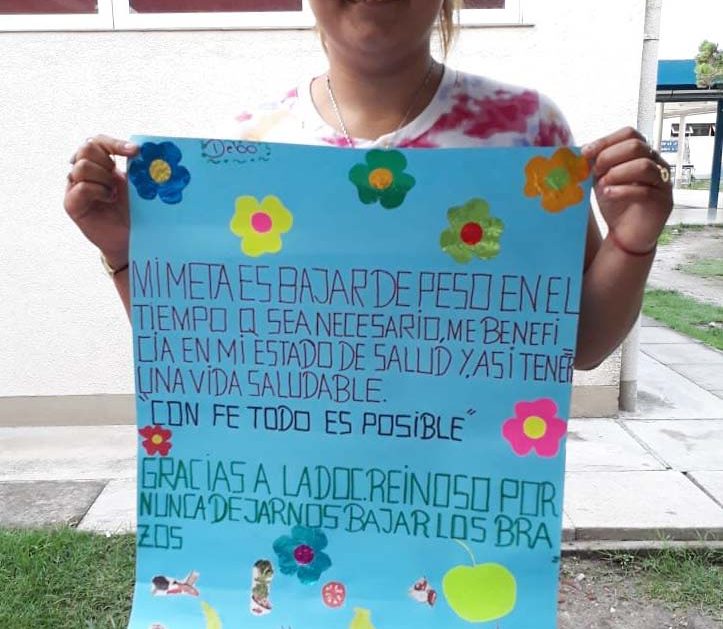 Debo
MI META ES BAJAR DE PESO EN EL
TIEMPO Q SEA NECESARIO, ME BENEFI
CÍA EN MI ESTADO DE SALUD, Y, ASI TENER
UNA VIDA SALUDABLE.
"CON FE TODO ES POSIBLE"
GRACIAS A LA DOC.REINOSO POR
NUNCA DEJARNOS BAJAR LOS BRA
ZOS